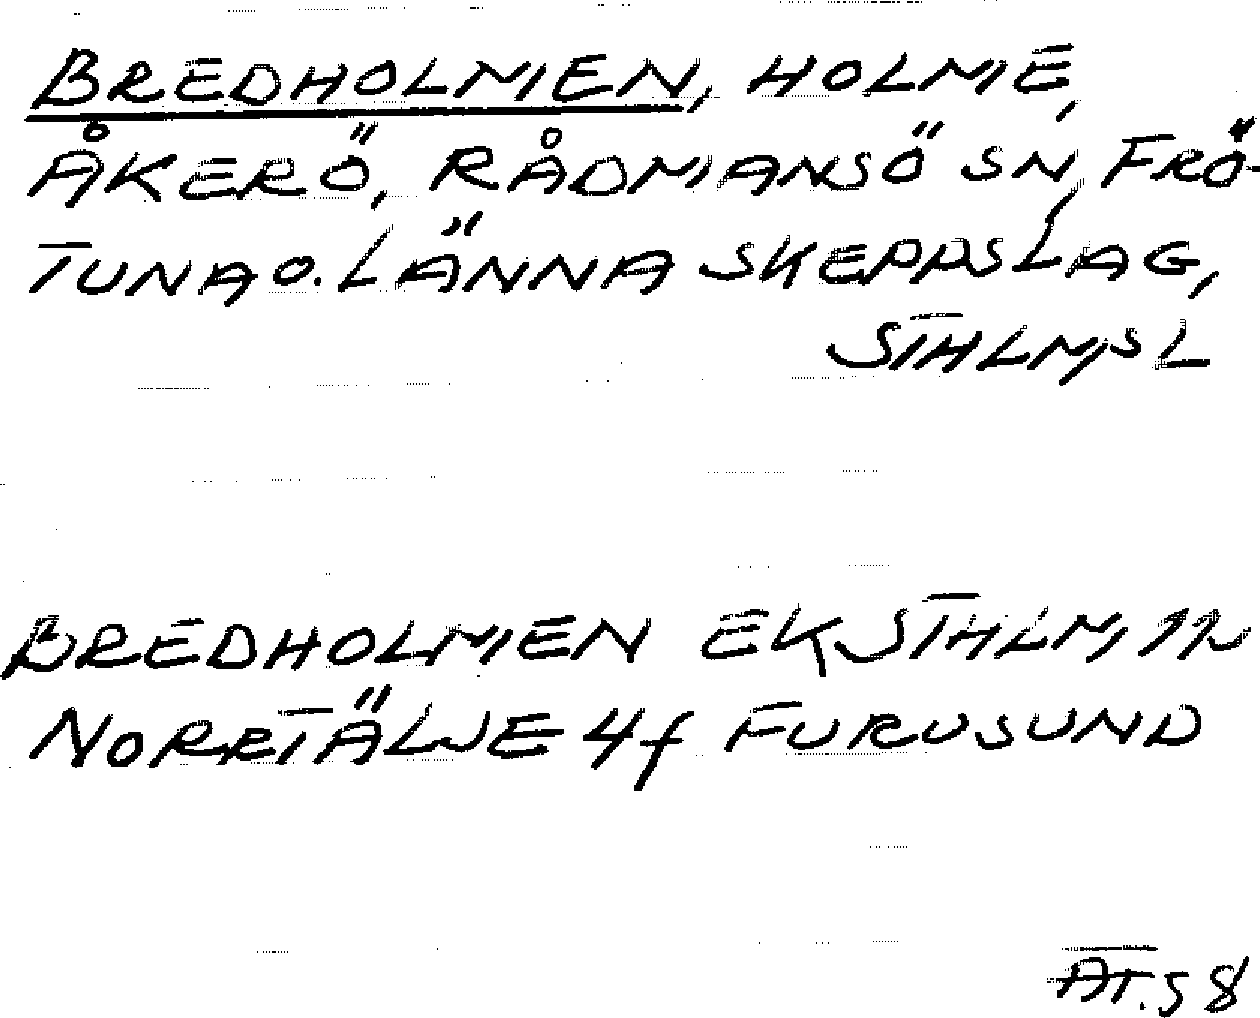 BREDHOLMEN, HOLME,
ÅKERÖ, RÅDMANSÖ SN, FRÖ-
TUNA O. LÄNNA SKEPPSLAG,
STHLMS L
BREDHOLMEN EK STHLM 11N
NORRTÄLJE 4f FURUSUND
AT. 58